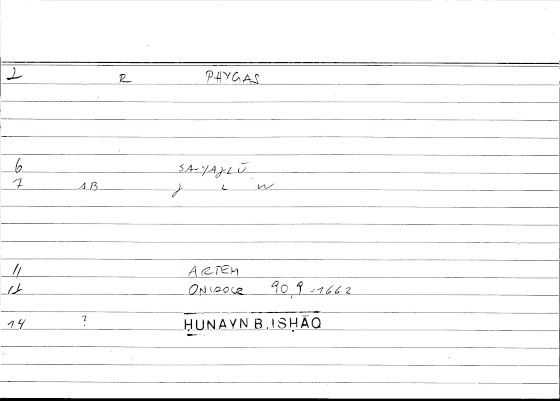 2 R PHYGAS
6 SA-YAJLŪ
7 AB J L W
11 ARTEM
12 ONIROCR 90,9-166,2
14 ? HUNAYN B. ISHĀQ